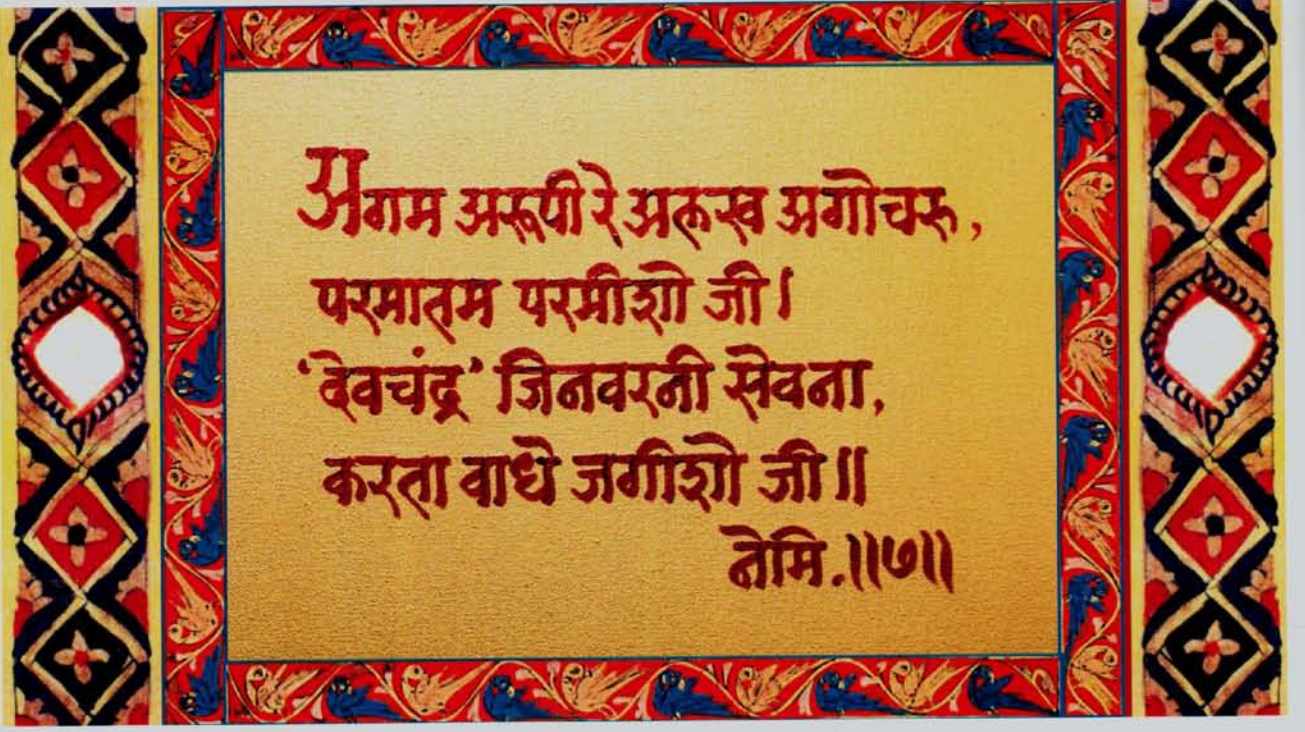 अगम अरूपी रे अलख अगोचरु,
परमातम परमीशो जी।
‘देवचंद्र’ जिनवरनी सेवना,
करता वाधे जगीशो जी॥
नेमि.॥७॥